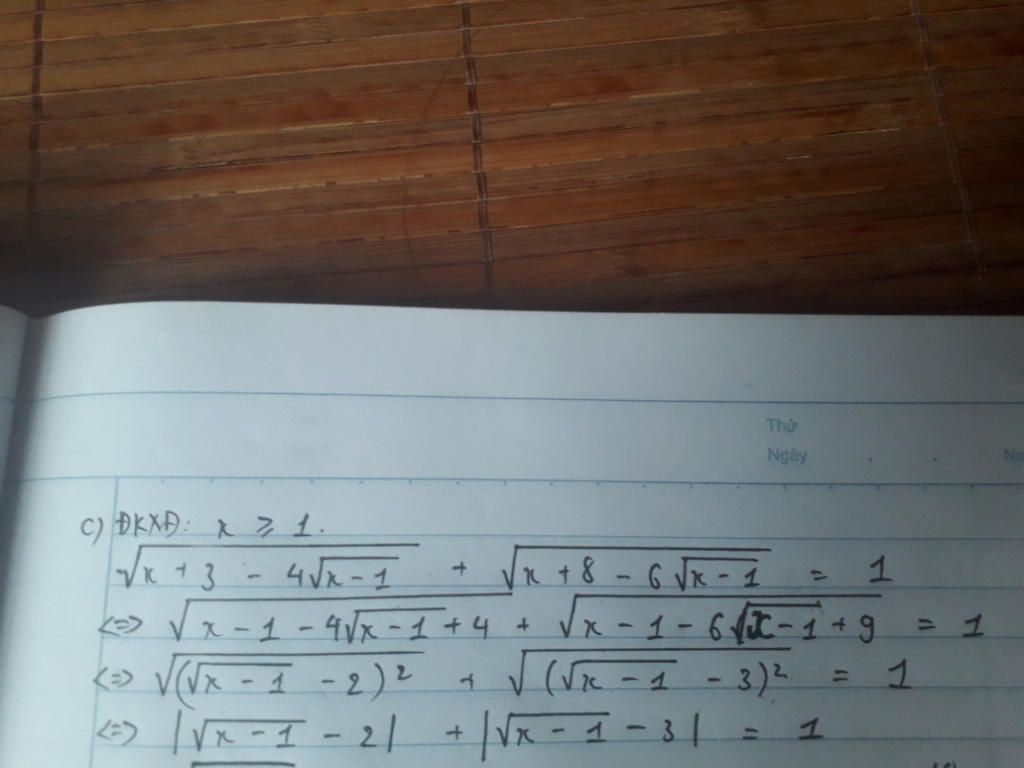 Thứ
Ngày
No
c) ĐKXĐ: x ≥ 1.
√(x + 3 - 4√(x - 1)) + √(x + 8 - 6√(x - 1)) = 1
<=> √(x - 1 - 4√(x - 1) + 4) + √(x - 1 - 6√(x - 1) + 9) = 1
<=> √((√(x - 1) - 2)²) + √((√(x - 1) - 3)²) = 1
<=> |√(x - 1) - 2| + |√(x - 1) - 3| = 1